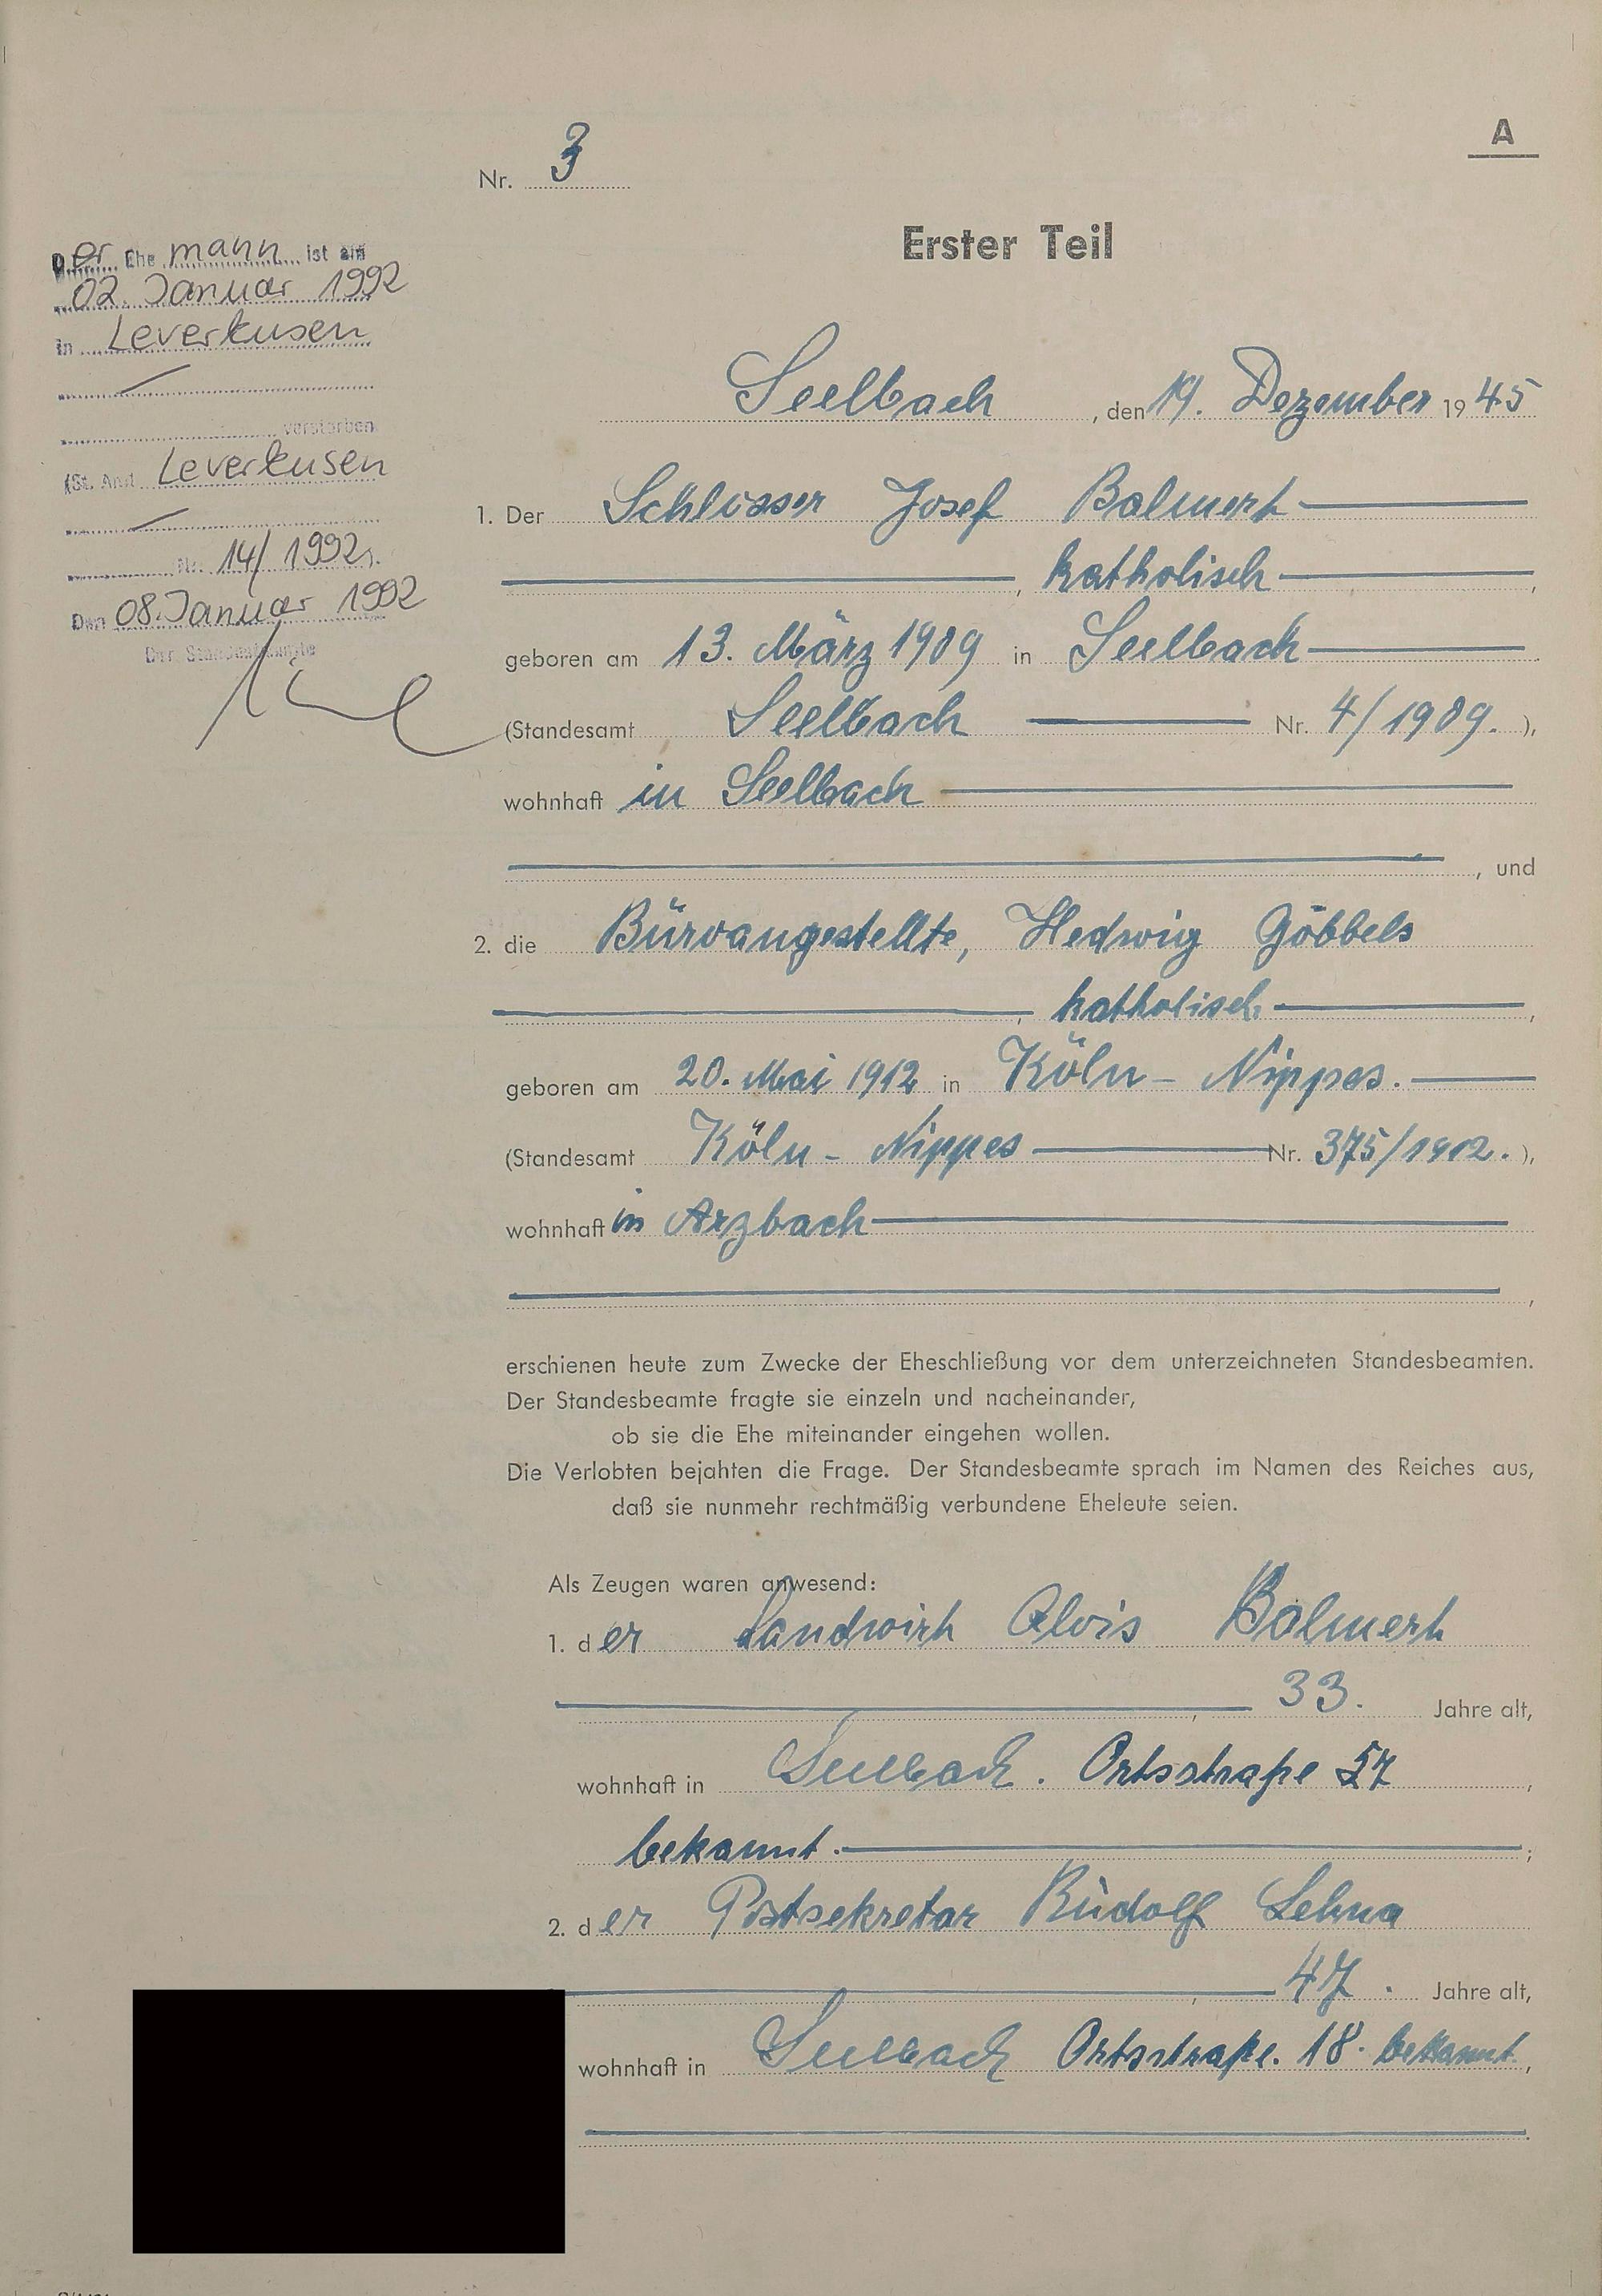 A
Nr. 3
Erster Teil
Der Ehe mann ist am
02. Januar 1992
in Leverkusen
verstorben
(St. Amt Leverkusen
Nr. 14/1992).
Den 08. Januar 1992
Der Standesbeamte
Seelbach, den 19. Dezember 1945
1. Der Schlosser Josef Balmert
, katholisch,
geboren am 13. März 1909 in Seelbach
(Standesamt Seelbach Nr. 4/1909.),
wohnhaft in Seelbach
, und
2. die Büroangestellte, Hedwig Göbbels
, katholisch,
geboren am 20. Mai 1912 in Köln - Nippes.
(Standesamt Köln - Nippes Nr. 375/1912.),
wohnhaft in Arzbach
,
erschienen heute zum Zwecke der Eheschließung vor dem unterzeichneten Standesbeamten.
Der Standesbeamte fragte sie einzeln und nacheinander,
ob sie die Ehe miteinander eingehen wollen.
Die Verlobten bejahten die Frage. Der Standesbeamte sprach im Namen des Reiches aus,
daß sie nunmehr rechtmäßig verbundene Eheleute seien.
Als Zeugen waren anwesend:
1. der Landwirt Alois Balmert
, 33. Jahre alt,
wohnhaft in Seelbach. Ortsstraße 57,
bekannt.;
2. der Postsekretar Rudolf Lehna
, 47. Jahre alt,
wohnhaft in Seelbach Ortsstraße. 18. bekannt.,